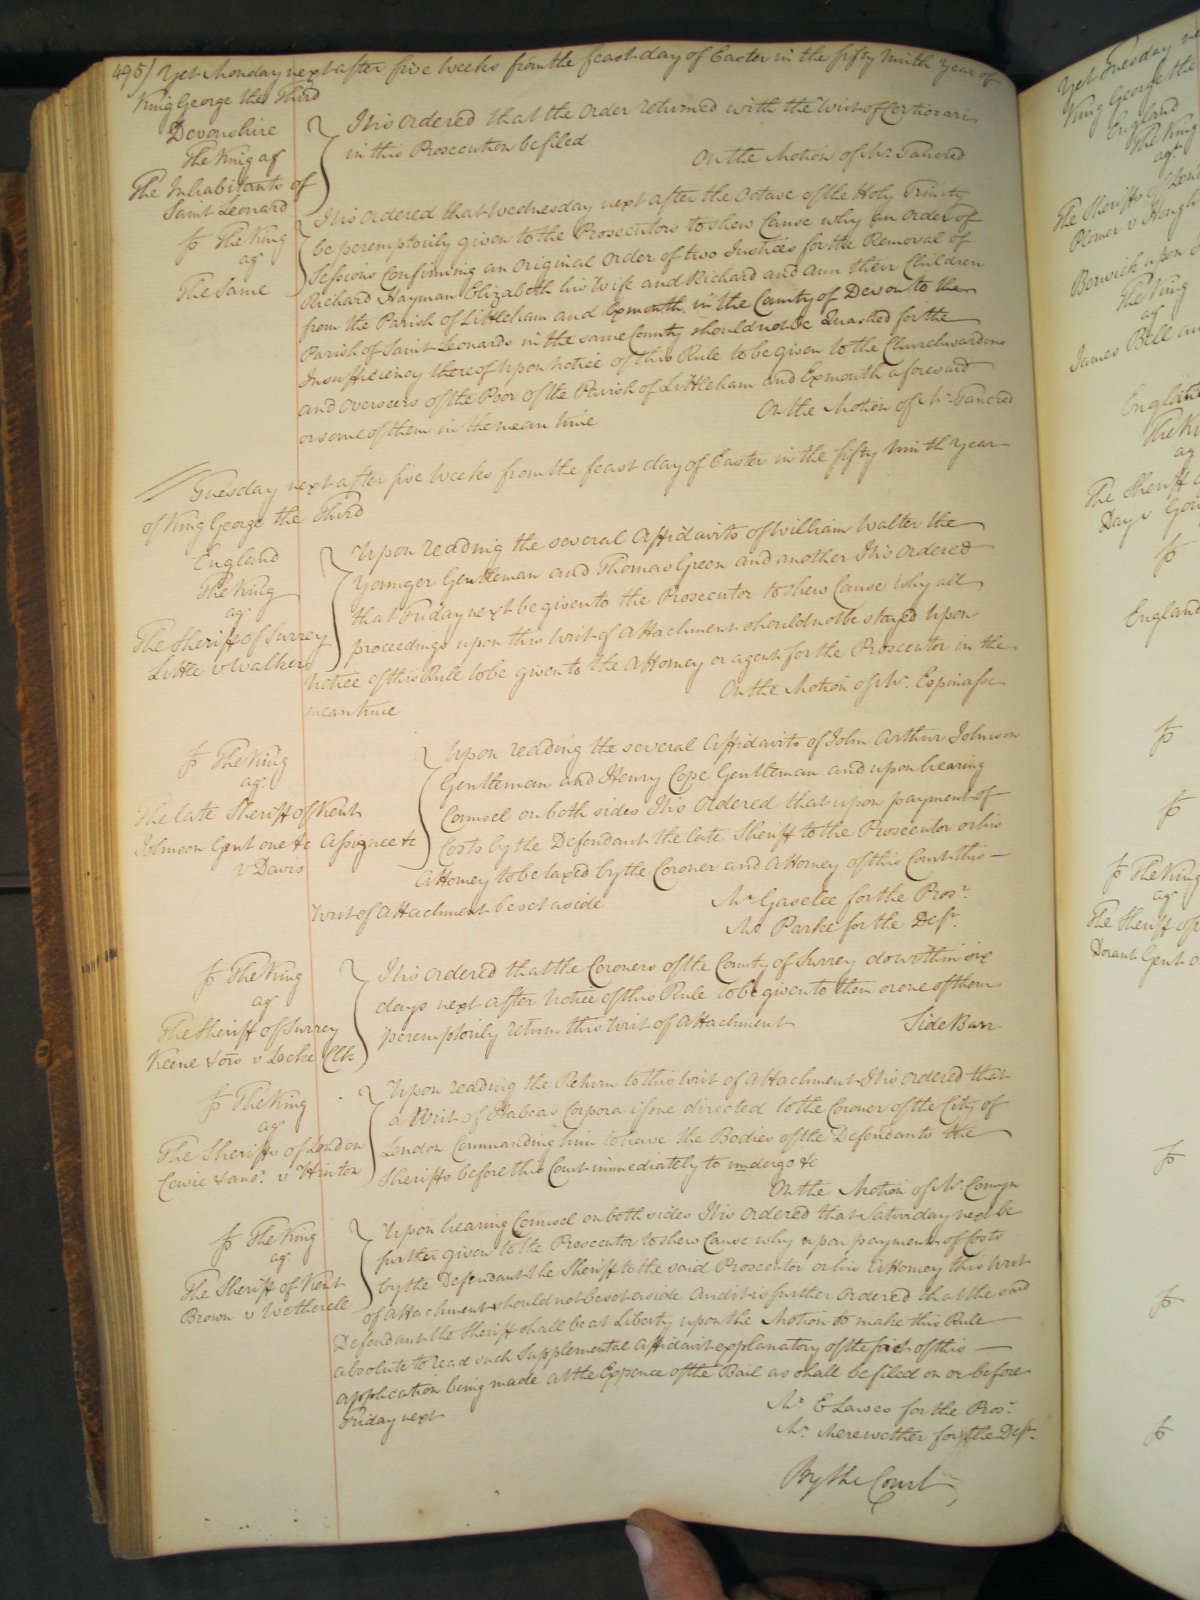 495/ Yet Monday next after five Weeks from the feast day of Easter in the fifty ninth Year of
King George the Third
Devonshire
The King agt
The Inhabitants of
Saint Leonard
It is Ordered that the Order returned with the Writ of Certiorari
in this Prosecution be filed
On the Motion of Mr. Tancred
The King
agt
The Same
It is Ordered that Wednesday next after the Octave of the Holy Trinity
be peremptorily given to the Prosecutors to shew Cause why an Order of
Sessions Confirming an Original Order of two Justices for the Removal of
Richard Hayman Elizabeth his Wife and Richard and Ann their Children
from the Parish of Littleham and Exmouth in the County of Devon to the
Parish of Saint Leonards in the same County should not be Quashed for the
Insufficiency thereof Upon Notice of this Rule to be given to the Churchwardens
and Overseers of the Poor of the Parish of Littleham and Exmouth aforesaid
or some of them in the mean time
On the Motion of Mr. Tancred
Tuesday next after five Weeks from the feast day of Easter in the fifty ninth Year
of King George the Third
England
The King
agt
The Sheriff of Surrey
Little v Walkers
Upon reading the several Affidavits of William Walter the
Younger Gentleman and Thomas Green and another It is Ordered
that Friday next be given to the Prosecutor to shew Cause why all
proceedings upon this Writ of Attachment should not be stayed upon
Notice of this Rule to be given to the Attorney or agent for the Prosecutor in the
mean time
On the Motion of Mr. Espinasse
The King
agt
The late Sheriff of Kent
Johnson Gent one &c Assignee &c
v Davis
Upon reading the several Affidavits of John Arthur Johnson
Gentleman and Henry Cope Gentleman and upon hearing
Counsel on both sides It is Ordered that upon payment of
Costs by the Defendant the late Sheriff to the Prosecutor or his
Attorney to be taxed by the Coroner and Attorney of this Court this
Writ of Attachment be set aside
Mr Gaselee for the Prosr
Mr Parke for the Deft.
The King
agt
The Sheriff of Surrey
Keene & ors v Locke Clk
It is Ordered that the Coroners of the County of Surrey do within six
days next after Notice of this Rule to be given to them or one of them
peremptorily return this Writ of Attachment
Side Barr
The King
agt
The Sheriffs of London
Cowie & anor. v Hinton
Upon reading the Return to this Writ of Attachment It is Ordered that
a Writ of Habeas Corpora issue directed to the Coroner of the City of
London Commanding him to have the Bodies of the Defendants the
Sheriffs before this Court immediately to undergo &c
On the Motion of Mr. Comyn
The King
agt
The Sheriff of Kent
Brown v
Upon hearing Counsel on both sides It is Ordered that Saturday next be
further given to the Prosecutor to shew Cause why upon payment of Costs
by the Defendant the Sheriff to the said Prosecutor or his Attorney this Writ
of Attachment should not be set aside And it is further Ordered that the said
Defendant the Sheriff shall be at Liberty upon the Motion to make this Rule
absolute to read such Supplemental Affidavit explanatory of the fact of this
application being made at the Expence of the Bail as shall be filed on or before
Friday next
Mr E Lawes for the Prosr.
Mr. Merewether for the Deft.
By the Court
Yet Tuesday
King George the
England
The King
agt
The Sheriffs of Lon
Plomer v
Berwick upon
The King
agt
James Bell an
England
The Ki
ag
The Sheriff o
Day v
England
The King
agt
The Sheriff of
Dorant Gent o